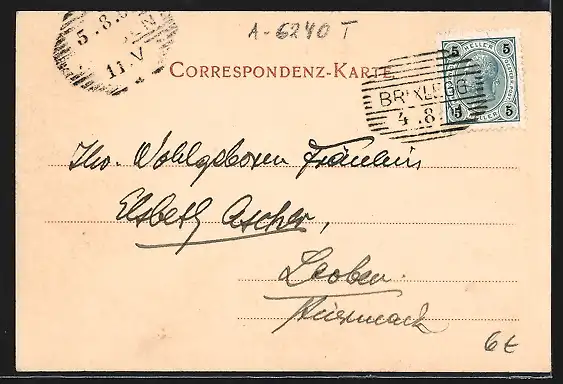 A-6240 T
5.8.
11.V
CORRESPONDENZ-KARTE
5 HELLER 5
BRIXLEGG
4.8
5 HELLER 5
Ihr. Wohlgeboren Fräulein
Elsbeth Ascher,
Leoben.
Steiermark
6€